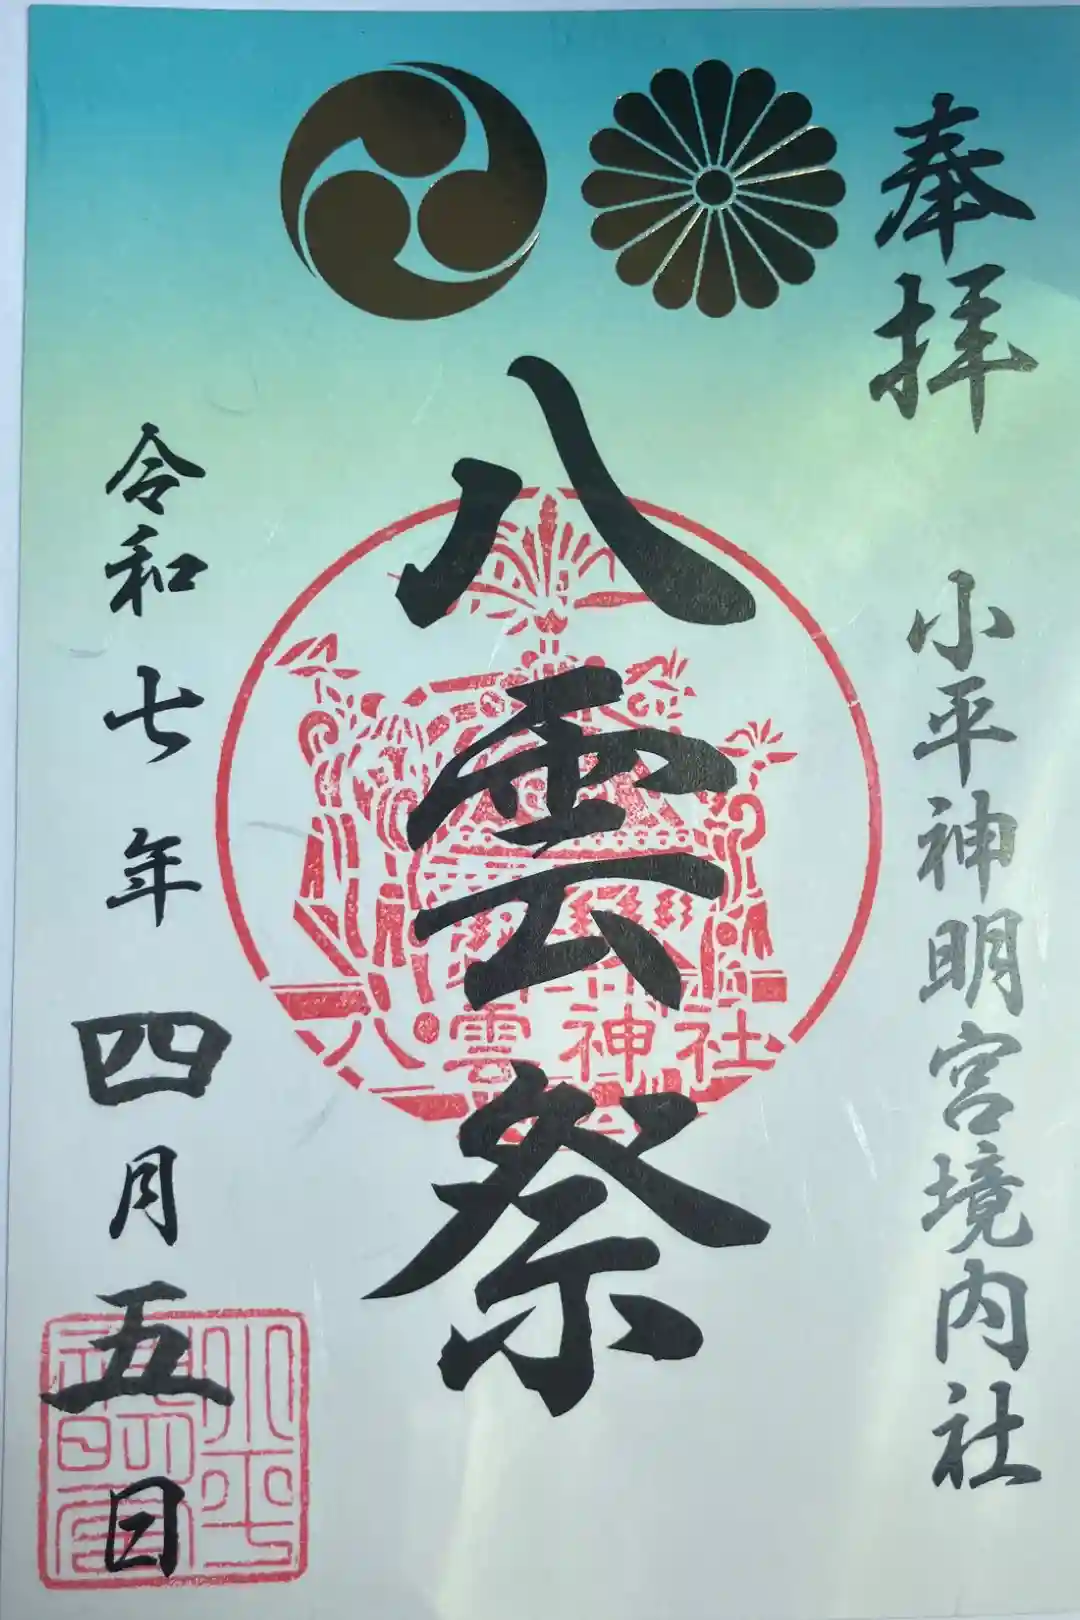 奉拝
小平神明宮境内社
八雲祭
八雲神社
令和七年四月五日
小平神明宮